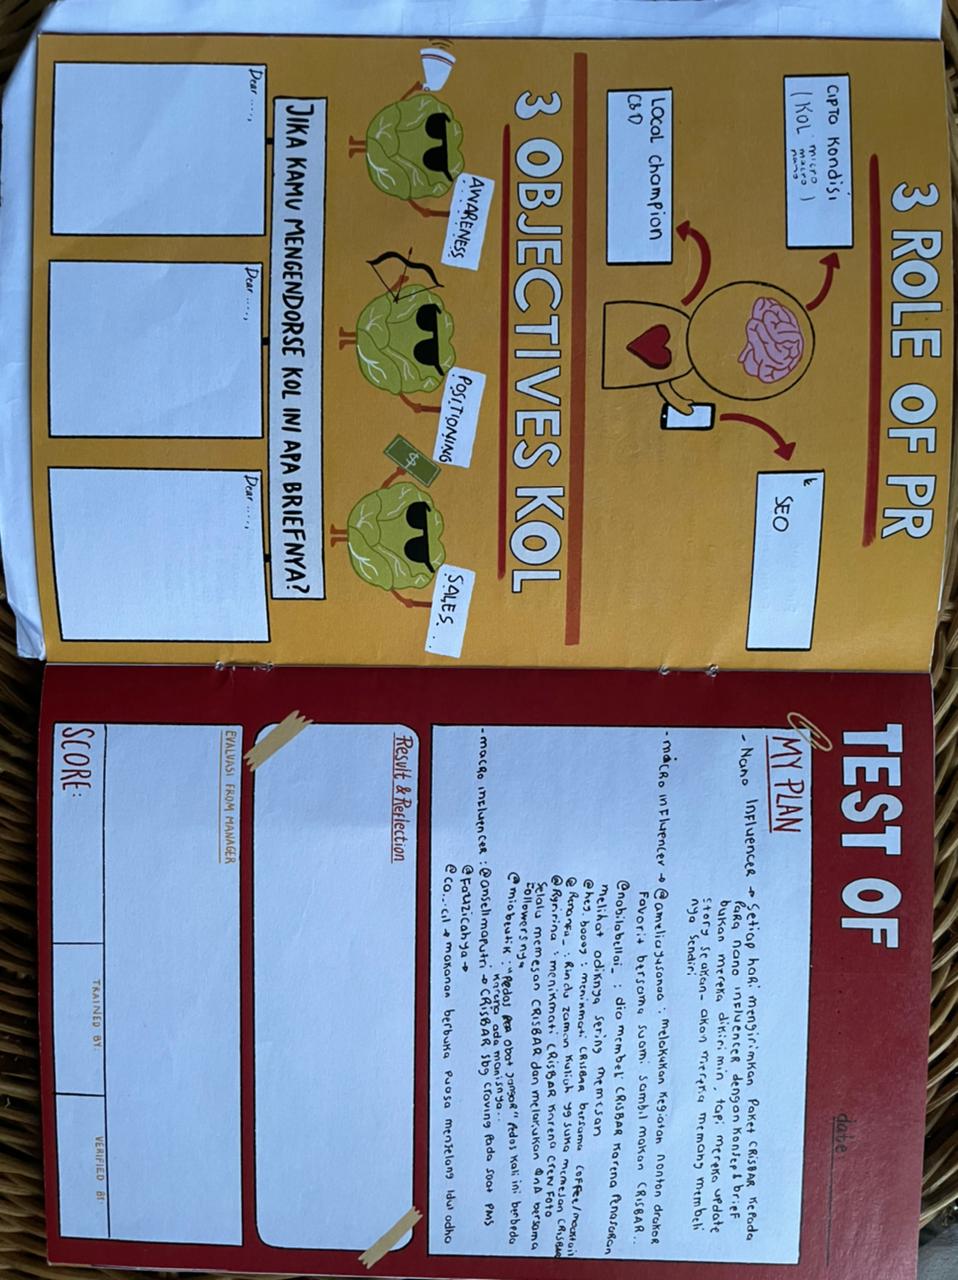 3 ROLE OF PR
CIPTO KONDISI
( KOL micro
macro
nano )
LOCAL CHAMPION
CBD
SEO
3 OBJECTIVES KOL
AWARENESS
POSITIONING
SALES...
$
JIKA KAMU MENGENDORSE KOL INI APA BRIEFNYA?
Dear ....,
Dear ....,
Dear ....,
TEST OF
date:
MY PLAN
- Nano Influencer → Setiap hari mengirimkan Paket CRISBAR kepada
para nano influencer dengan konsep & brief
bukan mereka dikirimin, tapi mereka update
story seakan-akan mereka memang membeli
nya sendiri
- micro influencer → @ameliayusanaa : melakukan kegiatan nonton drakor
favorit bersama suami sambil makan CRISBAR..
@nabilabellai_ : dia membeli CRISBAR karena Penasaran
melihat adiknya sering memesan
: menikmati CRISBAR bersama coffee/
: Rindu zaman kuliah yg suka memesan CRISBAR
: menikmati CRISBAR karena
Selalu memesan CRISBAR dan melakukan QnA bersama
followersnya
@miabutik : "Pedas obat " Pedas kali ini berbeda
karena ada manisnya..
- macro influencer : @anselmaputri → CRISBAR sbg craving Pada saat PMS
@Fauzicahya →
@ca...cil → makanan berbuka puasa menjelang Idul adha
Result & Reflection
EVALUASI FROM MANAGER
SCORE:
TRAINED BY:
VERIFIED BY: